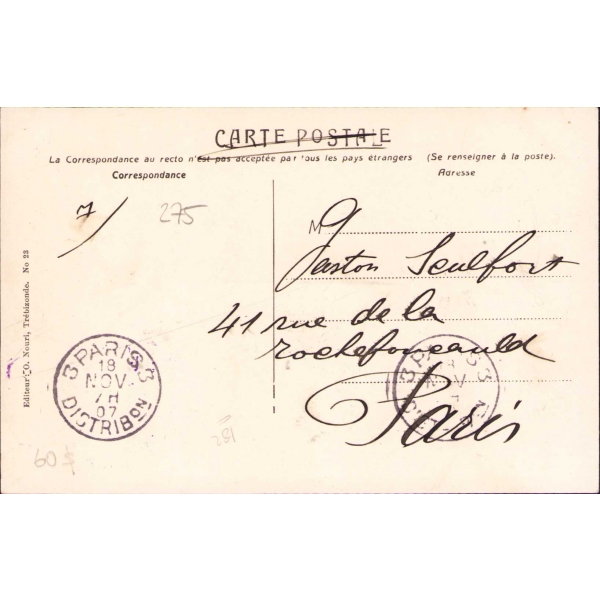 CARTE POSTALE
La Correspondance au recto n'est pas acceptée par tous les pays étrangers (Se renseigner à la poste).
Correspondance
Adresse
7/
275
M
Gaston Seulfort
41 rue de la
rochefoucauld
Paris
Editeur O. Nouri, Trébizonde. No 23
3 PARIS 3
18
NOV.
7H
07
DISTRIBON
281
60